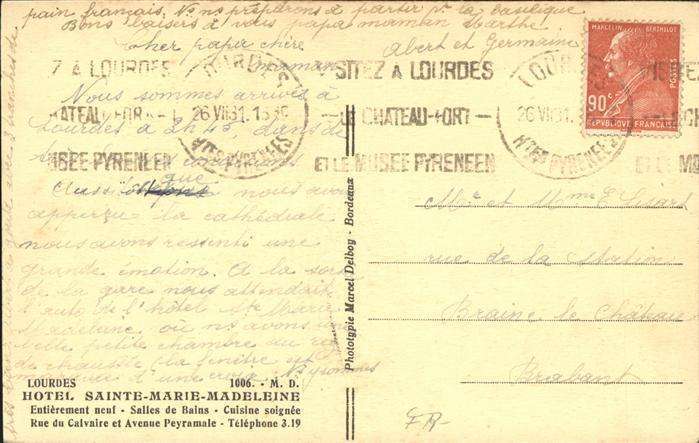 pain français. Ns ns préparons à partir pr la basilique
Bons baisers à vous papa maman Marthe
Albert et Germaine
Cher papa chère
maman
Nous sommes arrivés à
Lourdes à 2h45, dans de
conditions
Aussi que nous avons
apperçu la cathédrale
nous avons ressenti une
grande émotion. A la sortie
de la gare nous attendait
l'auto de l'hôtel Ste Marie
Madeleine où ns avons une
belle petite chambre au rez
de chaussée (la fenêtre est
marquée d'une croix) Ns y sommes
LOURDES 1006. - M. D.
HOTEL SAINTE-MARIE-MADELEINE
Entièrement neuf - Salles de Bains - Cuisine soignée
Rue du Calvaire et Avenue Peyramale - Téléphone 3.19
Phototypie Marcel Delboy - Bordeaux
Z À LOURDES
HATEAU-FORT
USÉE PYRENEEN
LOURDES
26 VII 31
HTES PYRENEES
SITEZ À LOURDES
LE CHATEAU-FORT
ET LE MUSEE PYRENEEN
LOURDES
26 VII 31
HTES PYRENEES
MARCELIN BERTHELOT
POSTES
90c
REPUBLIQUE FRANÇAISE
Mr et Mme
rue de la Station
Braine le Château
Brabant